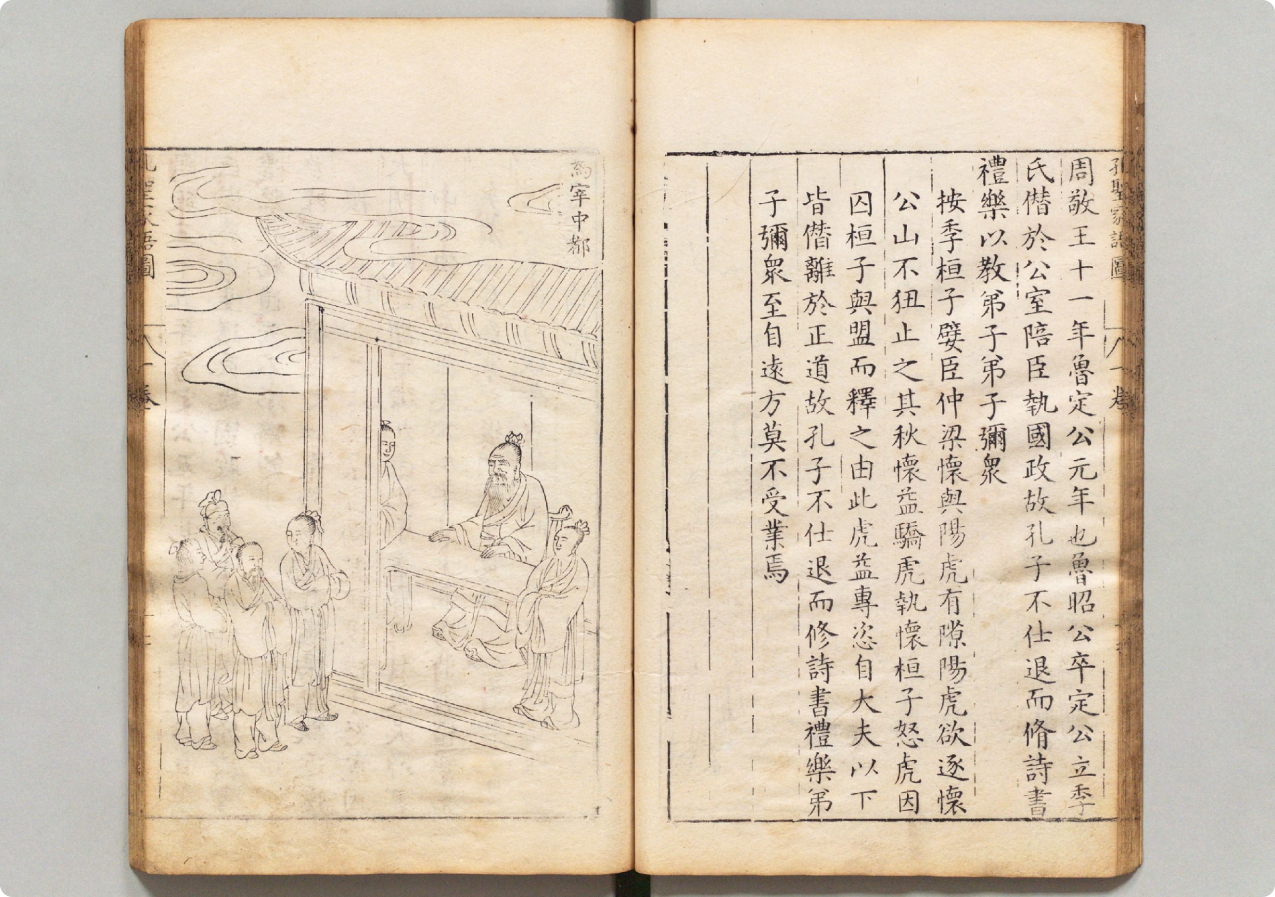 孔聖家語圖 一卷
周敬王十一年魯定公元年也魯昭公卒定公立季
氏僭於公室陪臣執國政故孔子不仕退而脩詩書
禮樂以教弟子弟子彌衆
按季桓子嬖臣仲梁懷與陽虎有隙陽虎欲逐懷
公山不狃止之其秋懷益驕虎執懷桓子怒虎因
囚桓子與盟而釋之由此虎益專恣自大夫以下
皆僭離於正道故孔子不仕退而修詩書禮樂弟
子彌衆至自遠方莫不受業焉
為宰中都